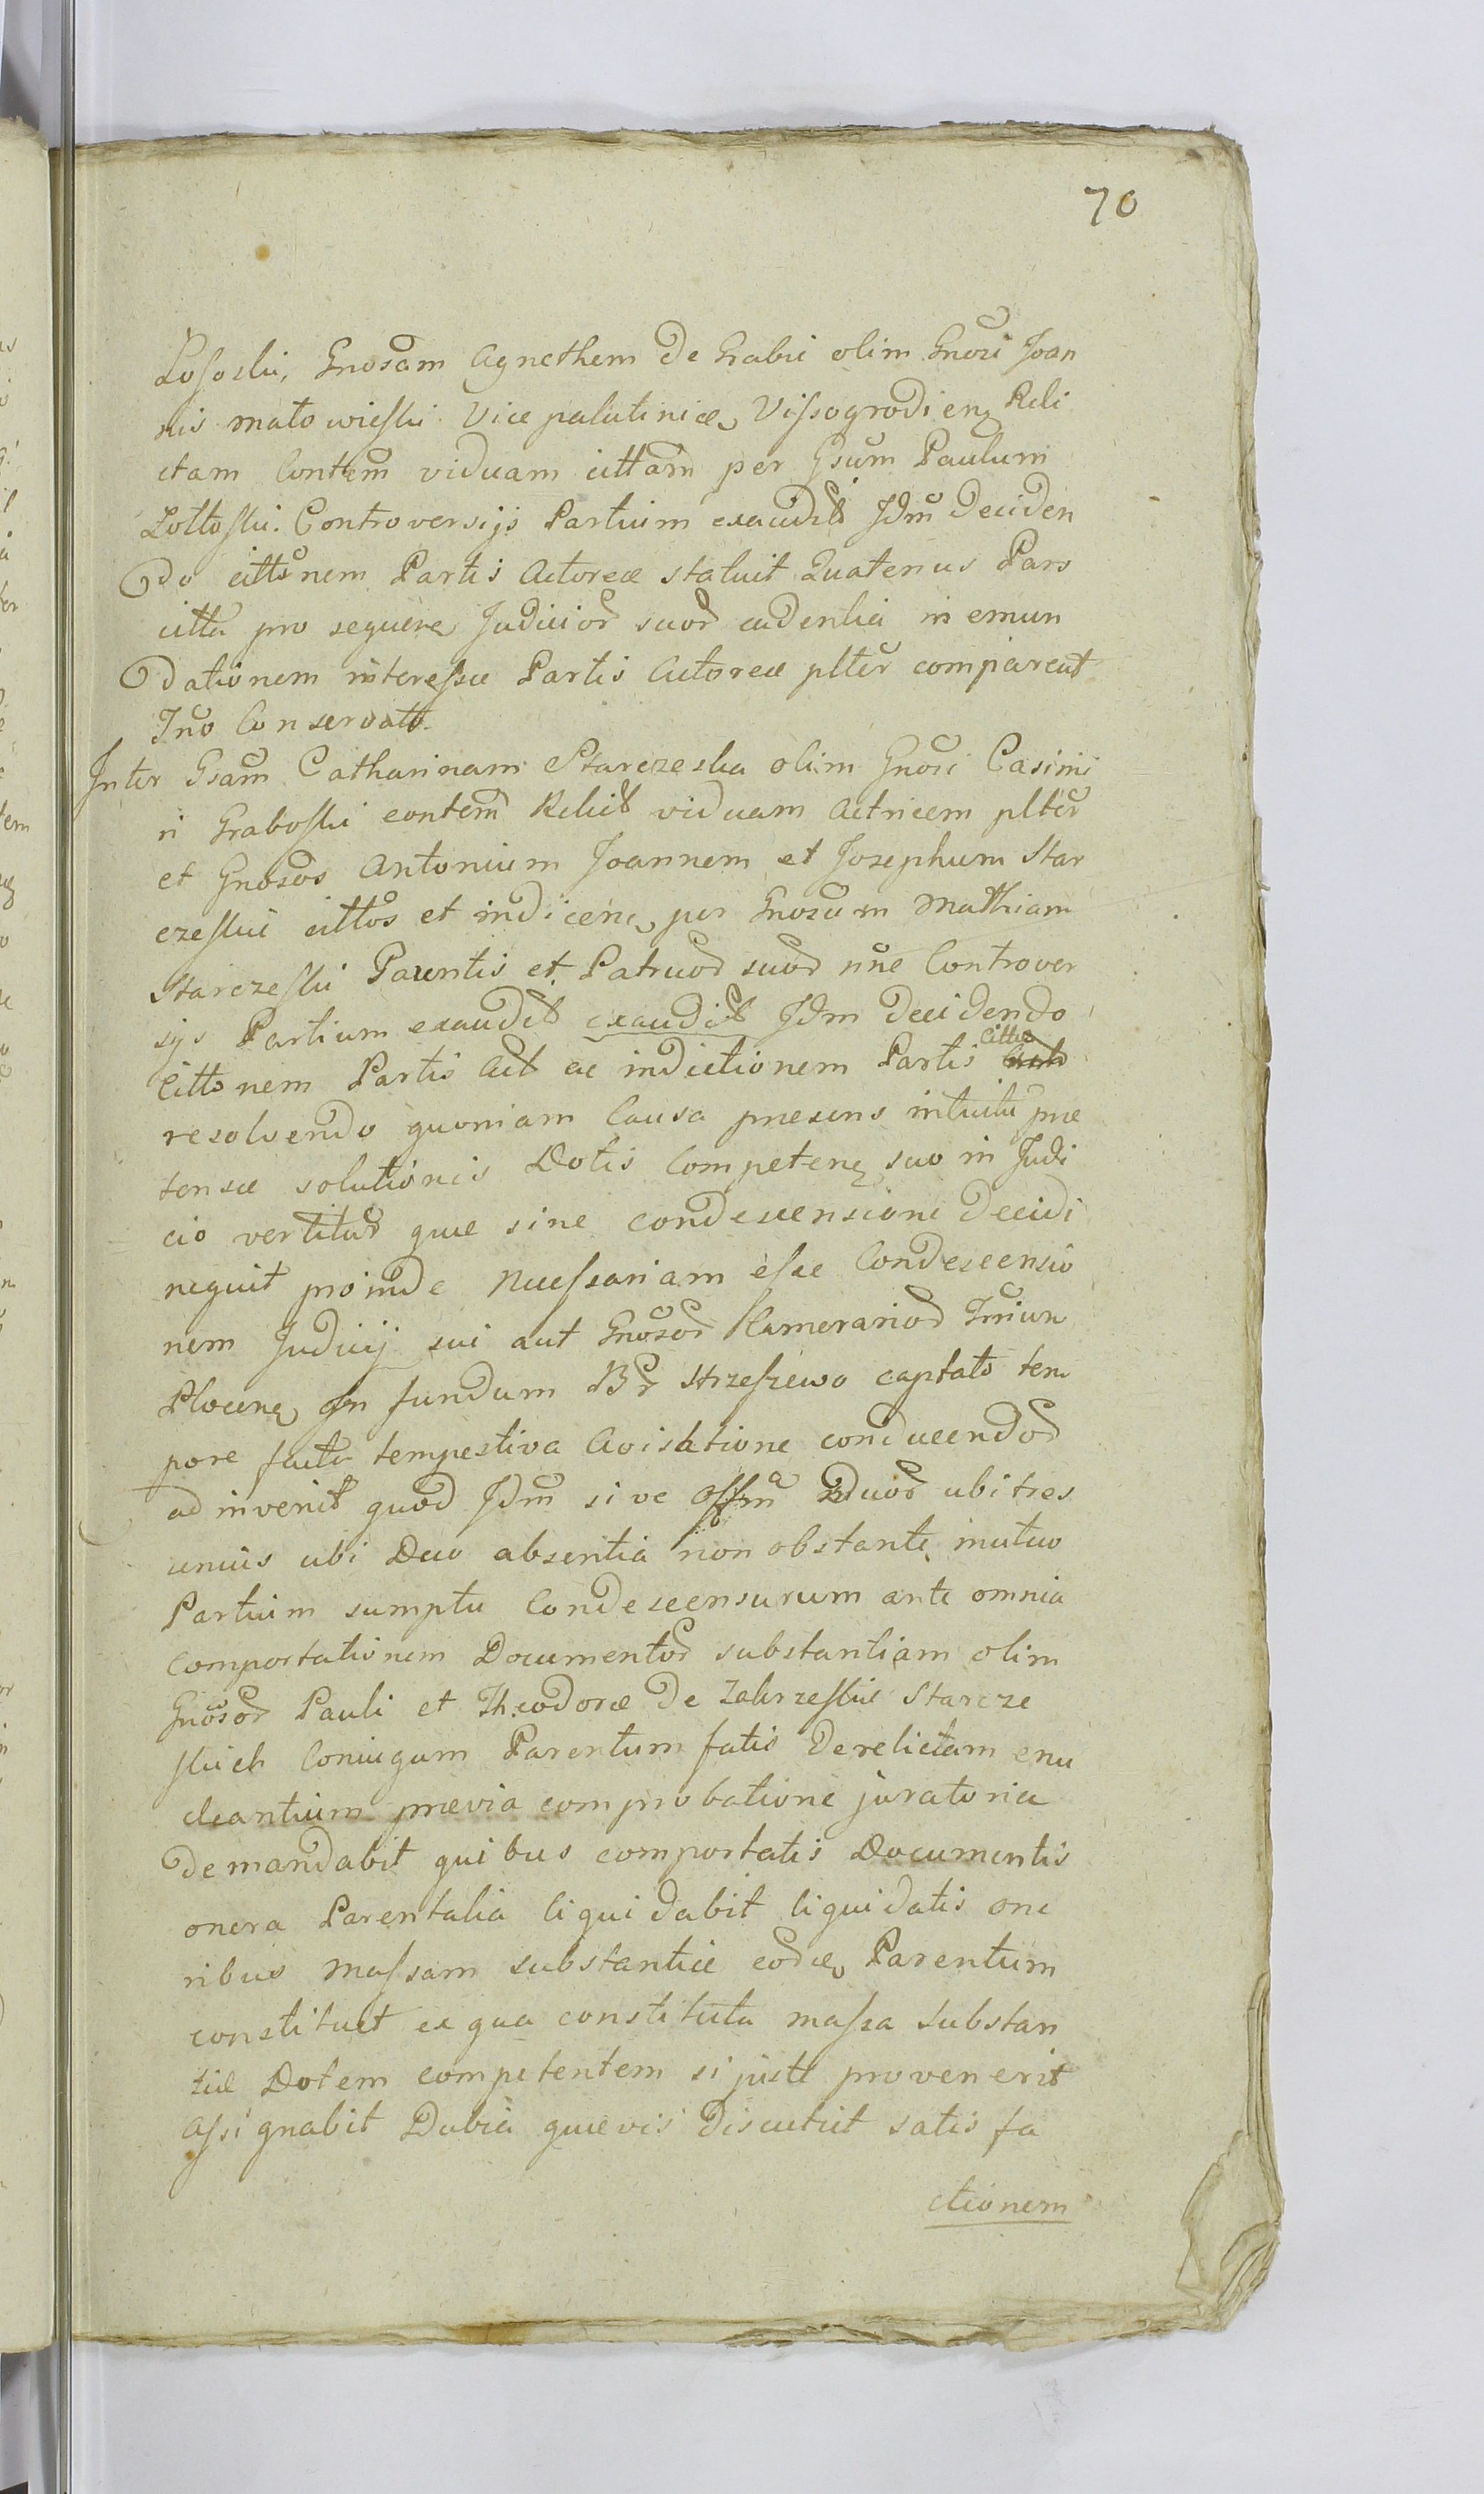 70
Lososki, Gnosam Agnethem de Grabie olim Gnosi Joan
nis Matowieski Vice palatinidæ Vissogrodien Reli
ctam Contem viduam cittam per Gsum Paulum
Lottoski. Controversijs Partium exaudit Jdm deciden
do cittonem Partis Actoreæ statuit Quatenus Pars
citta pro sequen Judicior suor cadentia in emun
dationem interesse Partis Actoreæ plter compareat
Tno Conservato.
Inter Gsam Catharinam Starczeska olim Gnosi Casimi
ri Graboski contem Relict viduam Actricem plter
et Gnosos Antonium Joannem et Josephum Star
czeskie cittos et indicen per Gnosum Mathiam
Starczeski Parentis et Patruor suor nne Controver
sijs Partium exaudit exaudit Jdm decidendo
Cittonem Partis Act ac indictionem Partis Cittæ
resolvendo quoniam Causa præsens intuitu præ
tensæ solutionis Dotis Competen suo in Judi
cio vertitur quæ sine condescensione decidi
nequit proinde necessariam esse Condescensio
nem Judicij sui aut Gnosor Camerarior Trium
Plocen in fundum Br Strzeszewo captato tem
pore facta tempestiva Avisatione conducendor
ad invenit quod Jdm sive Offm duor ubi tres
unius ubi Duo absentia non obstante mutuo
Partium sumptu Condescensurum ante omnia
Comportationem Documentor substantiam olim
Gnosor Pauli et Theodoræ de Zakrzeskie Starcze
skich Coniugum Parentum fatis derelictam enu
cleantium prævia comprobatione juratoria
demandabit quibus comportatis Documentis
onera Parentalia liquidabit liquidatis one
ribus massam substantiæ eor Parentum
constituet ex qua constituta massa substan
tiæ Dotem competentem si juste provenerit
assignabit Dubia quævis discutiet satis fa
ctionem